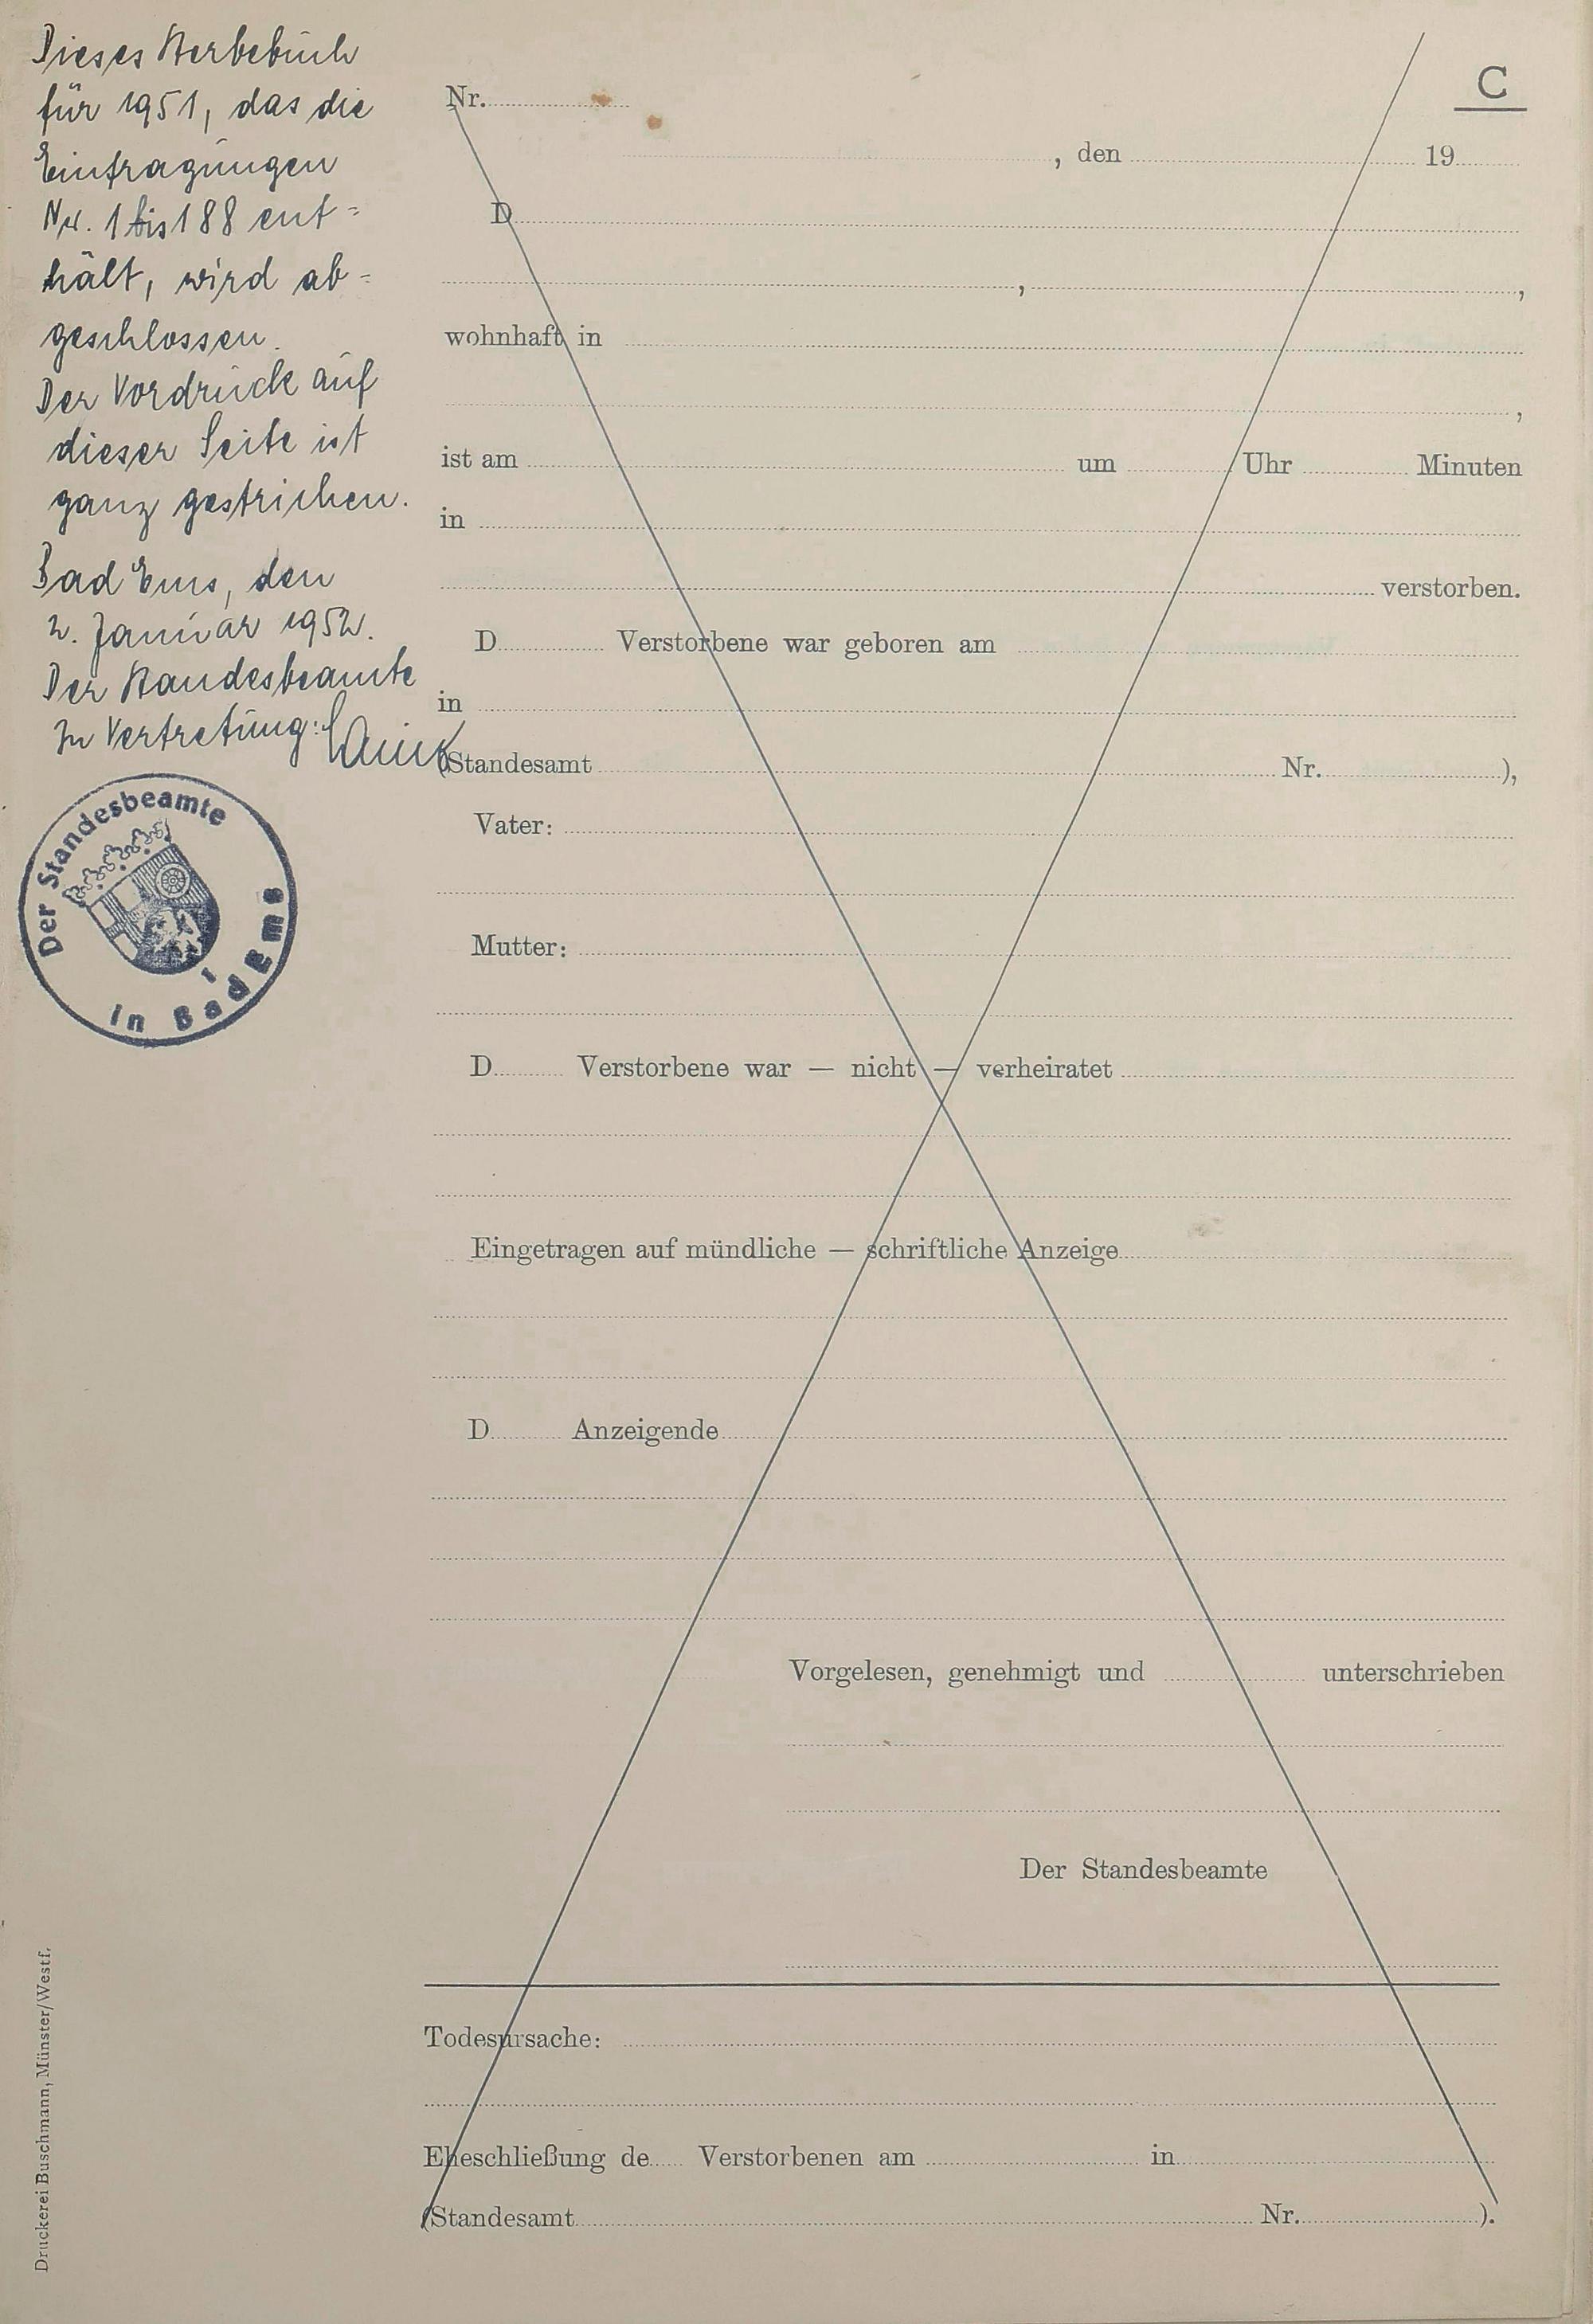 Dieses Sterbebuch
für 1951, das die
Eintragungen
Nr. 1 bis 188 ent=
hält, wird ab=
geschlossen.
Der Vordruck auf
dieser Seite ist
ganz gestrichen.
Bad Ems, den
2. Januar 1952.
Der Standesbeamte
In Vertretung:
Der Standesbeamte
in Bad Ems
1
Druckerei Buschmann, Münster/Westf.
C
Nr.
, den 19
D
, ,
wohnhaft in
,
ist am um Uhr Minuten
in
verstorben.
D Verstorbene war geboren am
in
(Standesamt Nr. ),
Vater:
Mutter:
D Verstorbene war — nicht — verheiratet
Eingetragen auf mündliche — schriftliche Anzeige
D Anzeigende
Vorgelesen, genehmigt und unterschrieben
Der Standesbeamte
Todesursache:
Eheschließung de Verstorbenen am in
(Standesamt Nr. ).